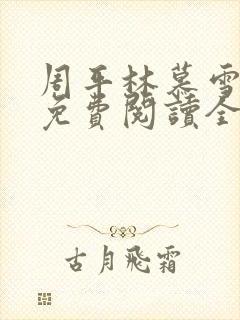 周平林慕雪
免費閱讀全
古月飛霜